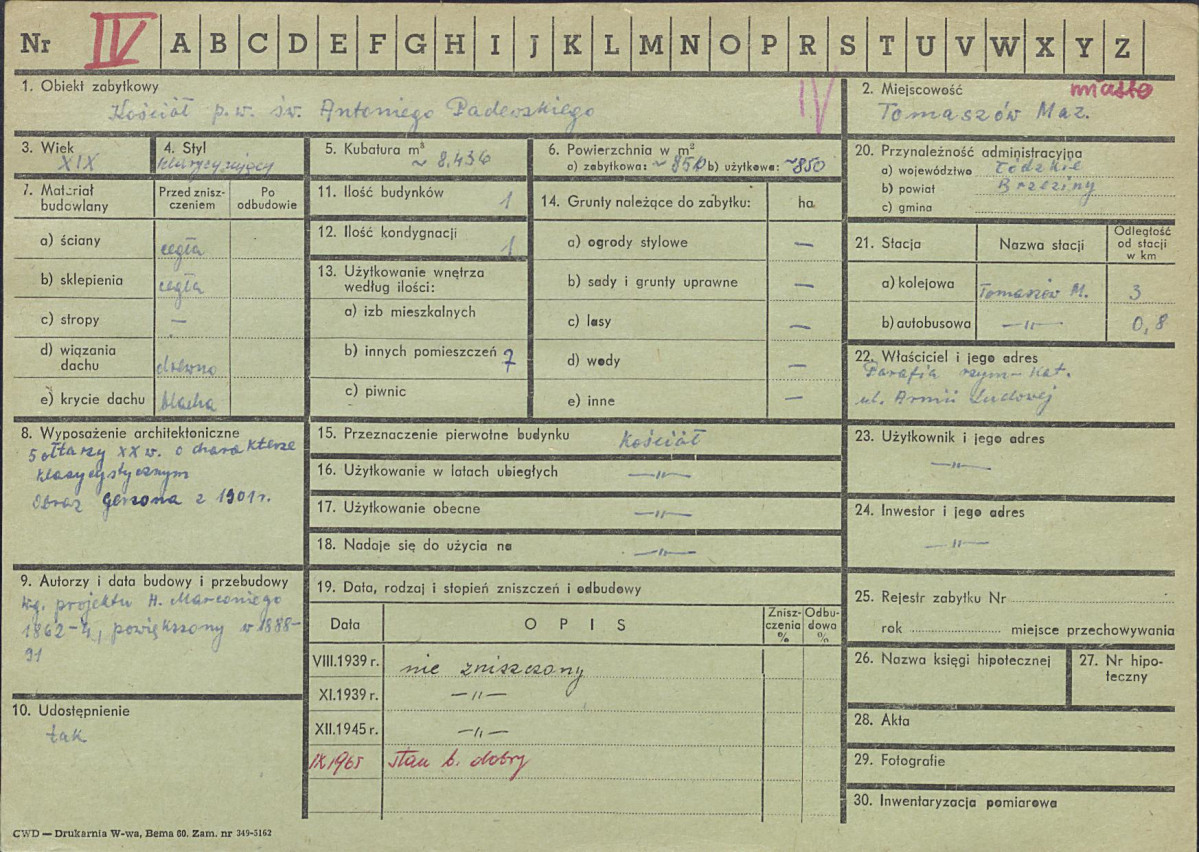 Nr IV A B C D E F G H I J K L M N O P R S T U V W X Y Z
1. Obiekt zabytkowy
Kościół p.w. św. Antoniego Padewskiego
IV
2. Miejscowość miasto
Tomaszów Maz.
3. Wiek
XIX
4. Styl
klasycyzujący
5. Kubatura m³
~ 8,436
6. Powierzchnia w m²
a) zabytkowa: ~ 850 b) użytkowa: ~850
20. Przynależność administracyjna
a) województwo Łódzkie
b) powiat Brzeziny
c) gmina
7. Materiał budowlany
Przed zniszczeniem
Po odbudowie
a) ściany cegła
b) sklepienia cegła
c) stropy —
d) wiązania dachu drewno
e) krycie dachu blacha
11. Ilość budynków 1
12. Ilość kondygnacji 1
13. Użytkowanie wnętrza
według ilości:
a) izb mieszkalnych
b) innych pomieszczeń 7
c) piwnic
14. Grunty należące do zabytku: ha
a) ogrody stylowe —
b) sady i grunty uprawne —
c) lasy —
d) wody —
e) inne —
21. Stacja Nazwa stacji Odległość od stacji w km
a) kolejowa Tomaszów M. 3
b) autobusowa —"— 0,8
22. Właściciel i jego adres
Parafia rzym-kat.
ul. Armii Ludowej
8. Wyposażenie architektoniczne
5 ołtarzy XX w. o charakterze
klasycystycznym
Obraz Gersona z 1901 r.
15. Przeznaczenie pierwotne budynku Kościół
16. Użytkowanie w latach ubiegłych —"—
17. Użytkowanie obecne —"—
18. Nadaje się do użycia na —"—
23. Użytkownik i jego adres
—"—
24. Inwestor i jego adres
—"—
9. Autorzy i data budowy i przebudowy
wg. projektu H. Marconiego
1862-4, powiększony w 1888-
91
10. Udostępnienie
tak
19. Data, rodzaj i stopień zniszczeń i odbudowy
Data OPIS Zniszczenia % Odbudowa %
VIII.1939 r. nie zniszczony
XI.1939 r. —"—
XII.1945 r. —"—
IX 1965 stan b. dobry
25. Rejestr zabytku Nr
rok miejsce przechowywania
26. Nazwa księgi hipotecznej
27. Nr hipoteczny
28. Akta
29. Fotografie
30. Inwentaryzacja pomiarowa
CWD — Drukarnia W-wa, Bema 60. Zam. nr 349-5162